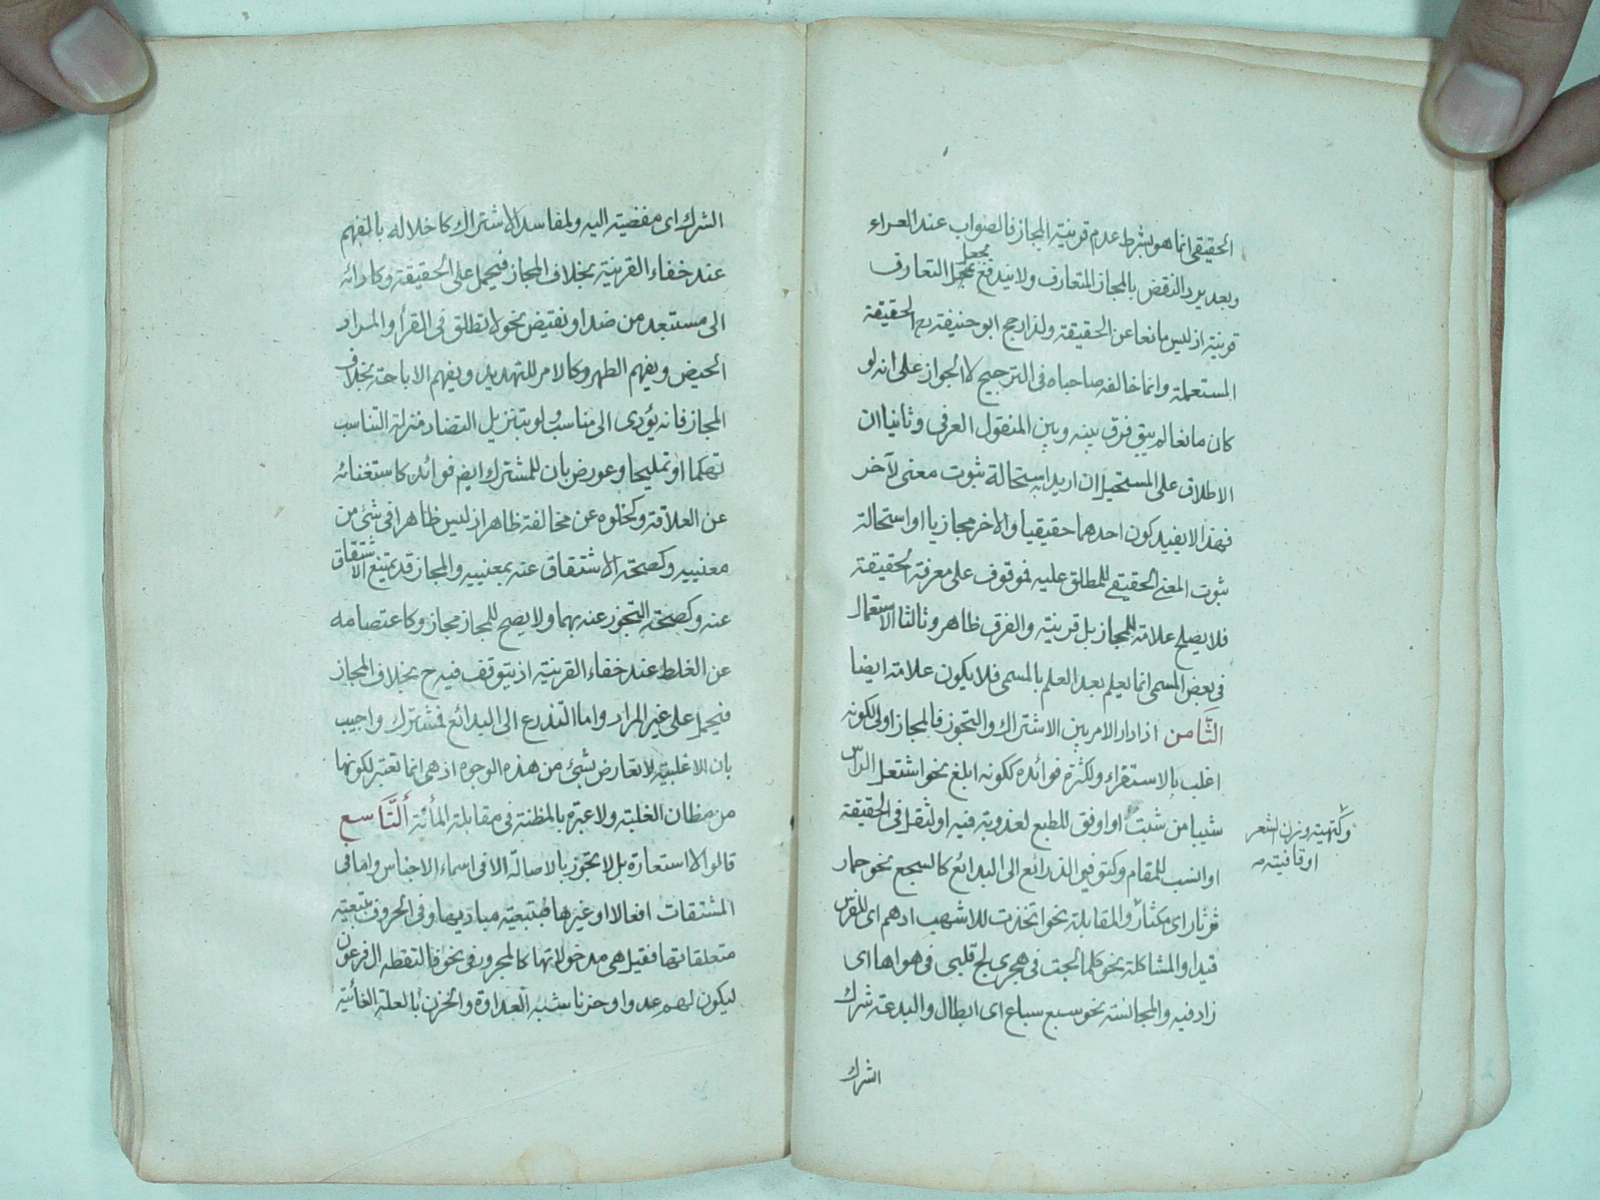 الحقيقى انما هو بشرط عدم قرينة المجاز فالصواب عند العراء
وبعد يرد النقض بالمجاز المتعارف ولا يندفع بجعل التعارف
يجعل
قرينة اذ ليس مانعا عن الحقيقة ولذا رجح ابو حنيفة رح الحقيقة
المستعملة وانما خالفه صاحباه فى الترجيح لا الجواز على انه لو
كان مانعا لم يبق فرق بينه وبين المنقول العرفى وثانيا ان
الاطلاق على المستحيل ان اريد به استحالة ثبوت معنى لآخر
فهذا لا يفيد كون احدهما حقيقيا والاخر مجازيا او استحالة
ثبوت المعنى الحقيقى للمطلق عليه فموقوف على معرفة الحقيقة
فلا يصلح علامة للمجاز بل قرينة والفرق ظاهر وثالثا الاستعمال
فى بعض المسمى انما يعلم بعد العلم بالمسمى فلا يكون علامة ايضا
الثامن اذا دار الامر بين الاشتراك والتجوز فالمجاز اولى لكونه
اغلب بالاستقراء ولكثرة فوائده ككونه ابلغ نحو اشتعل الراس
شيبا من شبت او اوفق للطبع لعذوبة فيه او لثقل فى الحقيقة
او انسب للمقام وكتوفيق الذرائع الى البدائع كالسجع نحو حمار
ثرثار اى مكثار والمقابلة نحو اتخذت للاشهب ادهم اى للفرس
قيدا والمشاكلة نحو كلما لجت فى هجرى لج قلبى فى هواها اى
زاد فيه والمجانسة نحو سبع سباع اى ابطال والبدعة شرك
وكتهيئة وزن الشعر
او قافيته
الشرك
الشرك اى مفضية اليه ولمفاسد الاشتراك كاخلاله بالفهم
عند خفاء القرينة بخلاف المجاز فيحمل على الحقيقة وكادائه
الى مستبعد من ضد او نقيض نحو لا تطلق فى القرأ والمراد
الحيض ويفهم الطهر وكالامر للتهديد ويفهم الاباحة بخلاف
المجاز فانه يؤدى الى مناسب ولو بتنزيل التضاد منزلة التناسب
تهكما او تمليحا وعورض بان للمشترك ايضا فوائد كاستغنائه
عن العلاقة وكخلوه عن مخالفة ظاهر اذ ليس ظاهرا فى شئ من
معنييه وكصحة الاشتقاق عنه بمعنييه والمجاز قد يمتنع الاشتقاق
عنه وكصحة التجوز عنه بهما ولا يصح للمجاز مجاز وكاعتصامه
عن الغلط عند خفاء القرينة اذ يتوقف فيه ح بخلاف المجاز
فيحمل على غير المراد واما التذرع الى البدائع فمشترك واجيب
بان الاغلبية لا تعارض بشئ من هذه الوجوه اذ هى انما تعتبر لكونها
من مظان الغلبة ولا عبرة بالمظنة فى مقابلة المأنة التاسع
قالوا لا استعارة بل لا تجوز بالاصالة الا فى اسماء الاجناس واما فى
المشتقات افعالا او غيرها فبتبعية مباديها وفى الحروف بتبعية
متعلقاتها فقيل هى مدخولاتها كالمجرور فى نحو فالتقطه ال فرعون
ليكون لهم عدوا وحزنا شبه العداوة والحزن بالعلة الغائية